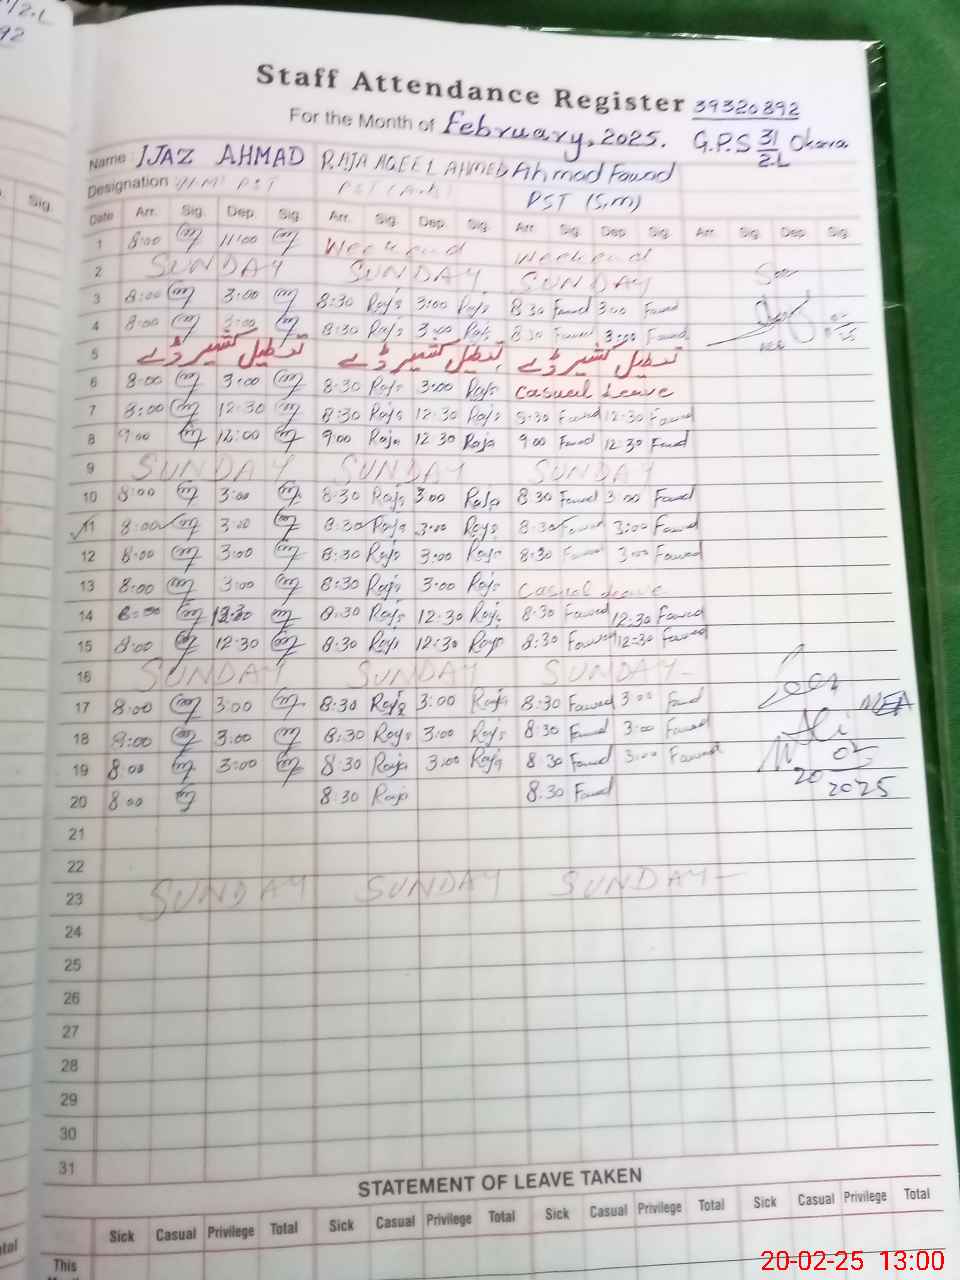 /2.L
92
Sig.
Staff Attendance Register 39320892
For the Month of February, 2025. G.P.S 31/2.L Okara
Name: IJAZ AHMAD RAJA AQEEL AHMED Ahmad Fawad
Designation PST PST PST (S,M)
Date Arr. Sig. Dep. Sig. Arr. Sig. Dep. Sig. Arr. Sig. Dep. Sig. Arr. Sig. Dep. Sig.
1 8:00 11:00 Weekend Weekend
2 SUNDAY SUNDAY SUNDAY
3 8:00 3:00 8:30 Raja 3:00 Raja 8:30 Fawad 3:00 Fawad
4 8:00 3:00 8:30 Raja 3:00 Raja 8:30 Fawad 3:00 Fawad
5 تعطیل کشمیر ڈے تعطیل کشمیر ڈے تعطیل کشمیر ڈے
6 8:00 3:00 8:30 Raja 3:00 Raja Casual Leave
7 8:00 12:30 8:30 Raja 12:30 Raja 8:30 Fawad 12:30 Fawad
8 9:00 12:00 9:00 Raja 12:30 Raja 9:00 Fawad 12:30 Fawad
9 SUNDAY SUNDAY SUNDAY
10 8:00 3:00 8:30 Raja 3:00 Raja 8:30 Fawad 3:00 Fawad
11 8:00 3:00 8:30 Raja 3:00 Raja 8:30 Fawad 3:00 Fawad
12 8:00 3:00 8:30 Raja 3:00 Raja 8:30 Fawad 3:00 Fawad
13 8:00 3:00 8:30 Raja 3:00 Raja Casual Leave
14 8:00 12:30 8:30 Raja 12:30 Raja 8:30 Fawad 12:30 Fawad
15 8:00 12:30 8:30 Raja 12:30 Raja 8:30 Fawad 12:30 Fawad
16 SUNDAY SUNDAY SUNDAY
17 8:00 3:00 8:30 Raja 3:00 Raja 8:30 Fawad 3:00 Fawad
18 8:00 3:00 8:30 Raja 3:00 Raja 8:30 Fawad 3:00 Fawad
19 8:00 3:00 8:30 Raja 3:00 Raja 8:30 Fawad 3:00 Fawad
20 8:00 8:30 Raja 8:30 Fawad 20 2025
21
22
23 SUNDAY SUNDAY SUNDAY
24
25
26
27
28
29
30
31
STATEMENT OF LEAVE TAKEN
Sick Casual Privilege Total Sick Casual Privilege Total Sick Casual Privilege Total Sick Casual Privilege Total
This
20-02-25 13:00